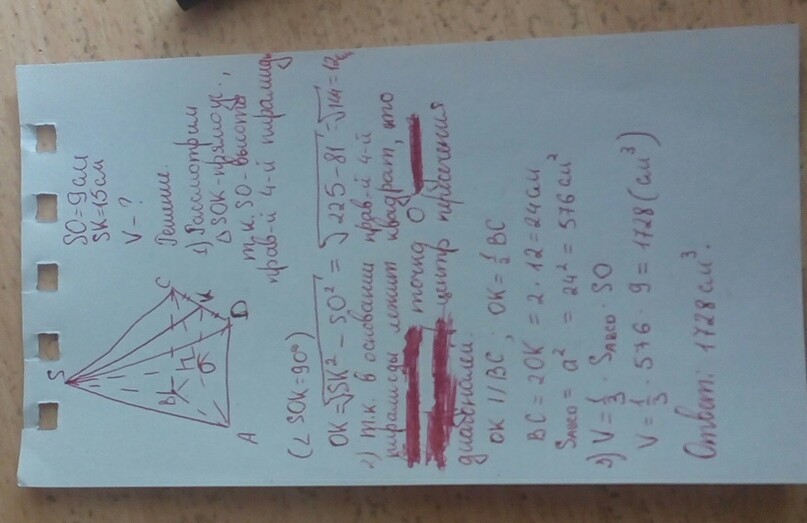 S
B
H
O
C
K
D
A
SO=9см
SK=15см
V-?
Решение.
1) Рассмотрим
△SOK-прямоуг.,
т.к. SO-высота
прав-й 4-й пирамиды
(∠SOK=90°)
OK=√SK²-SO² = √225-81 = √144=12
2) т.к. в основании прав-й 4-й
пирамиды лежит квадрат, то
точка O
центр пересечения
диагоналей.
OK//BC, OK=½BC
BC=2OK = 2·12=24см
SABCD = a² = 24² = 576см²
3) V=⅓·SABCD·SO
V=⅓·576·9=1728(см³)
Ответ: 1728см³.